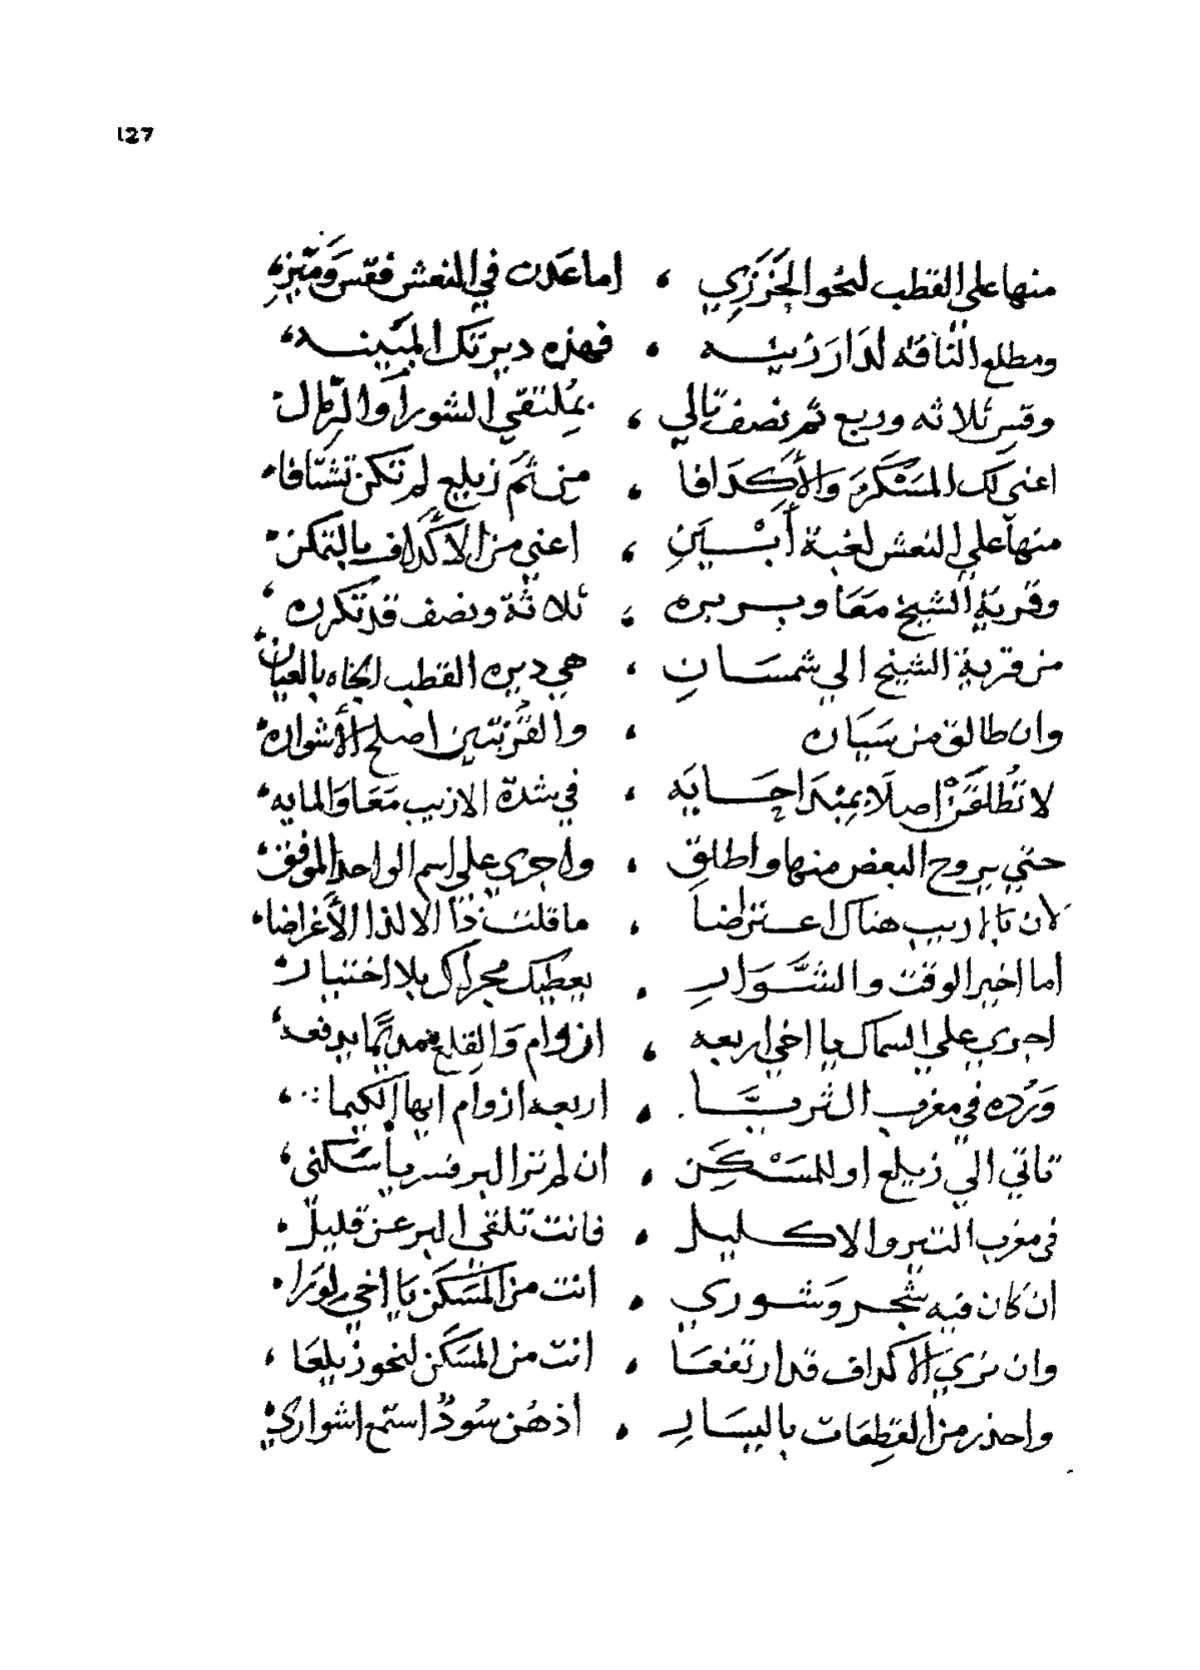 127
منها على القطب لنحو الجَزَرِي ، اما عدت في النعش فقس وميز
ومطلع الناقه لدار زينه ، فهذه ديرتك المبينه
وقس ثلاثه وربع ثم نصف تالي ، بملتقي الشورا والرمال
اعني لك المسكن والأكدافا ، من ثم زيلع لم تكن تشتافا
منها علي النعش لغبة أبْيَنِ ، اعني من الاكداف بالتمكن
وقرية الشيخ معا وبربره ، ثلاثة ونصف قد تكرره
من قرية الشيخ الي شمسان ، هي ديره القطب الجاه بالعيان
وان طالق من سَيَبان ، والقرنتين اصلح الأشوار
لا تُطلقَنْ اصلا بمبدا حَايَه ، في شدة الازيب معا والمايه
حتي يروح البعض منها واطلق ، واجري علي اسم الواحد الموفق
لان تا إزيب هناك اعتراضا ، ما قلت ذا الا لذا الأغراضا
اما اخير الوقت والشَّوَارِ ، يعطيك مجراك بلا اختيار
اجري علي السماك يا اخي اربعه ، ازوام والقلع
وَرُده في مغرب الثريَّا ، اربعه ازوام ايها الكيما
تاتي الي زيلع او للمَسْكَن ، ان لم تر البر فسر يا سَكَني
في مغرب التير والاكليل ، فانت تلقي البر عن قليل
ان كان فيه شجر وشوري ، انت من المسكن يا اخي لورا
وان تري الاكداف قد ارتفعا ، انت من المسكن لنحو زيلعا
واحذر من القطعات باليسار ، اذهُن سُودٌ استمع اشواري